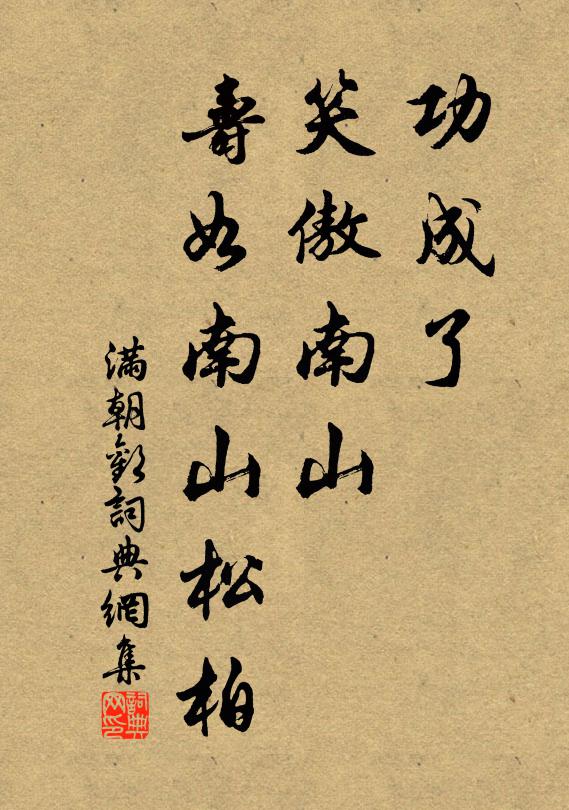 功成了
笑傲南山
壽如南山松柏
滿朝歡詞典網集
詞典網印